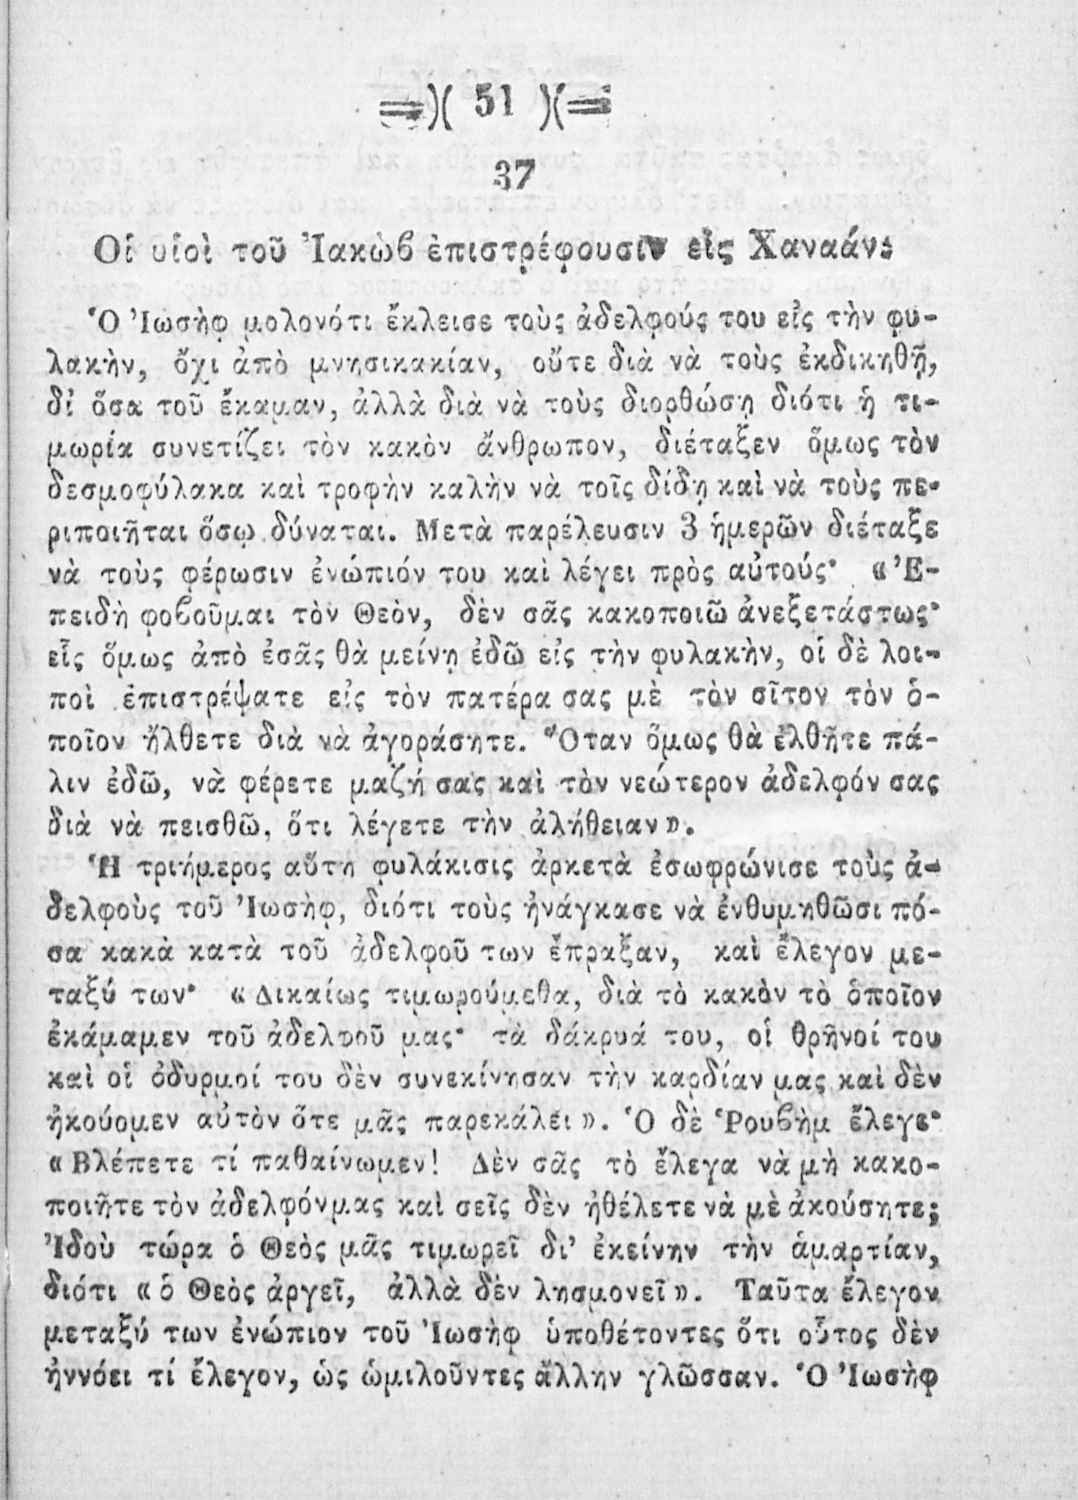 =)( 51 )(=
37
Οἱ υἱοὶ τοῦ Ἰακὼϐ ἐπιστρέφουσιν εἰς Χαναάν:
Ὁ Ἰωσὴφ μολονότι ἔκλεισε τοὺς ἀδελφούς του εἰς τὴν φυ-
λακὴν, ὄχι ἀπὸ μνησικακίαν, οὔτε διὰ νὰ τοὺς ἐκδικηθῇ,
δι' ὅσα τοῦ ἔκαμαν, ἀλλὰ διὰ νὰ τοὺς διορθώσῃ διότι ἡ τι-
μωρία συνετίζει τὸν κακὸν ἄνθρωπον, διέταξεν ὅμως τὸν
δεσμοφύλακα καὶ τροφὴν καλὴν νὰ τοῖς δίδῃ καὶ νὰ τοὺς πε-
ριποιῆται ὅσῳ δύναται. Μετὰ παρέλευσιν 3 ἡμερῶν διέταξε
νὰ τοὺς φέρωσιν ἐνώπιόν του καὶ λέγει πρὸς αὐτούς· «Ἐ-
πειδὴ φοϐοῦμαι τὸν Θεὸν, δὲν σᾶς κακοποιῶ ἀνεξετάστως·
εἷς ὅμως ἀπὸ ἐσᾶς θὰ μείνῃ ἐδῶ εἰς τὴν φυλακὴν, οἱ δὲ λοι-
ποὶ ἐπιστρέψατε εἰς τὸν πατέρα σας μὲ τὸν σῖτον τὸν ὁ-
ποῖον ἤλθετε διὰ νὰ ἀγοράσητε. Ὅταν ὅμως θὰ ἐλθῆτε πά-
λιν ἐδῶ, νὰ φέρετε μαζή σας καὶ τὸν νεώτερον ἀδελφόν σας
διὰ νὰ πεισθῶ, ὅτι λέγετε τὴν ἀλήθειαν».
Ἡ τριήμερος αὕτη φυλάκισις ἀρκετὰ ἐσωφρώνισε τοὺς ἀ-
δελφοὺς τοῦ Ἰωσὴφ, διότι τοὺς ἠνάγκασε νὰ ἐνθυμηθῶσι πό-
σα κακὰ κατὰ τοῦ ἀδελφοῦ των ἔπραξαν, καὶ ἔλεγον με-
ταξύ των· «Δικαίως τιμωρούμεθα, διὰ τὸ κακὸν τὸ ὁποῖον
ἐκάμαμεν τοῦ ἀδελφοῦ μας· τὰ δάκρυά του, οἱ θρῆνοί του
καὶ οἱ ὀδυρμοί του δὲν συνεκίνησαν τὴν καρδίαν μας καὶ δὲν
ἠκούομεν αὐτὸν ὅτε μᾶς παρεκάλει». Ὁ δὲ Ῥουϐὴμ ἔλεγε·
«Βλέπετε τί παθαίνωμεν! Δὲν σᾶς τὸ ἔλεγα νὰ μὴ κακο-
ποιῆτε τὸν ἀδελφόνμας καὶ σεῖς δὲν ἠθέλετε νὰ μὲ ἀκούσητε;
Ἰδοὺ τώρα ὁ Θεὸς μᾶς τιμωρεῖ δι' ἐκείνην τὴν ἁμαρτίαν,
διότι «ὁ Θεὸς ἀργεῖ, ἀλλὰ δὲν λησμονεῖ». Ταῦτα ἔλεγον
μεταξύ των ἐνώπιον τοῦ Ἰωσὴφ ὑποθέτοντες ὅτι οὗτος δὲν
ἠννόει τί ἔλεγον, ὡς ὡμιλοῦντες ἄλλην γλῶσσαν. Ὁ Ἰωσὴφ